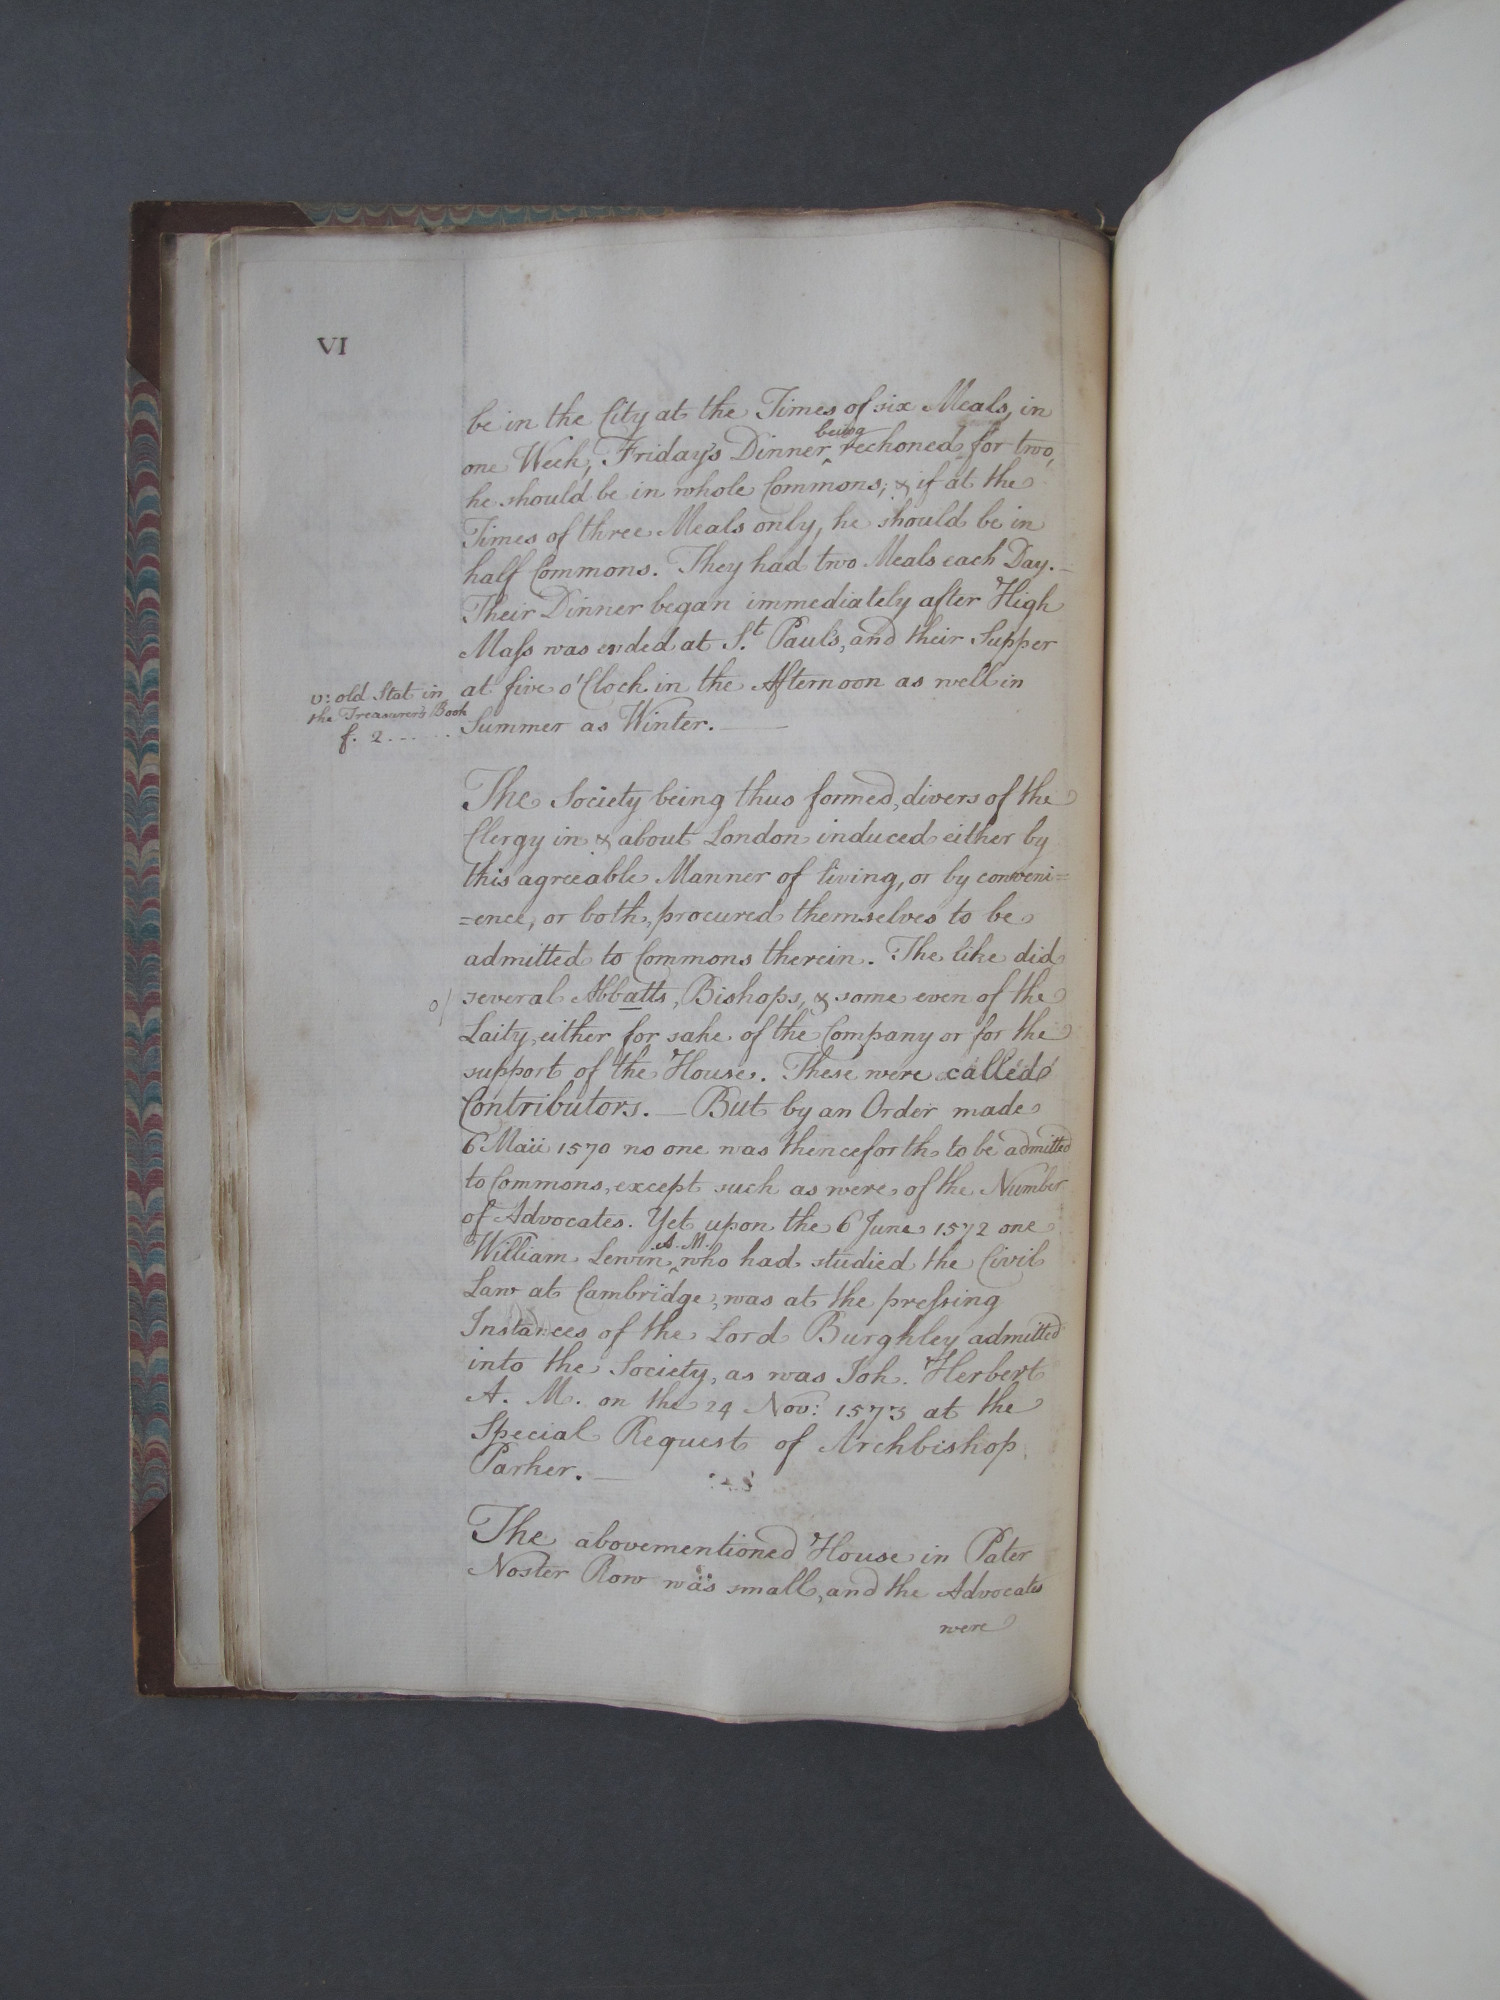 VI
be in the City at the Times of six Meals, in
one Week, Friday's Dinner ^being reckoned for two,
he should be in whole Commons; & if at the
Times of three Meals only, he should be in
half Commons. They had two Meals each Day. –
Their Dinner began immediately after High
Maſs was ended at St. Paul's, and their Supper
at five o'Clock in the Afternoon as well in
Summer as Winter. —
v: old Stat in
the Treasurer's Book
f. 2......
The Society being thus formed, divers of the
Clergy in & about London induced either by
this agreeable Manner of living, or by conveni=
=ence, or both, procured themselves to be
admitted to Commons therein. The like did
several Abbatts, Bishops, & some even of the
Laity, either for sake of the Company or for the
support of the House. These were called
Contributors. — But by an Order made
6 Maii 1570 no one was thenceforth to be admitted
to Commons, except such as were of the Number
of Advocates. Yet upon the 6 June 1572 one
William Lewin ^A.M. who had studied the Civil
Law at Cambridge, was at the preſsing
Instances of the Lord Burghley admitted
into the Society, as was Joh. Herbert
A. M. on the 24 Nov: 1573 at the
Special Request of Archbishop
Parker. —
The abovementioned House in Pater
Noster Row was small, and the Advocates
were